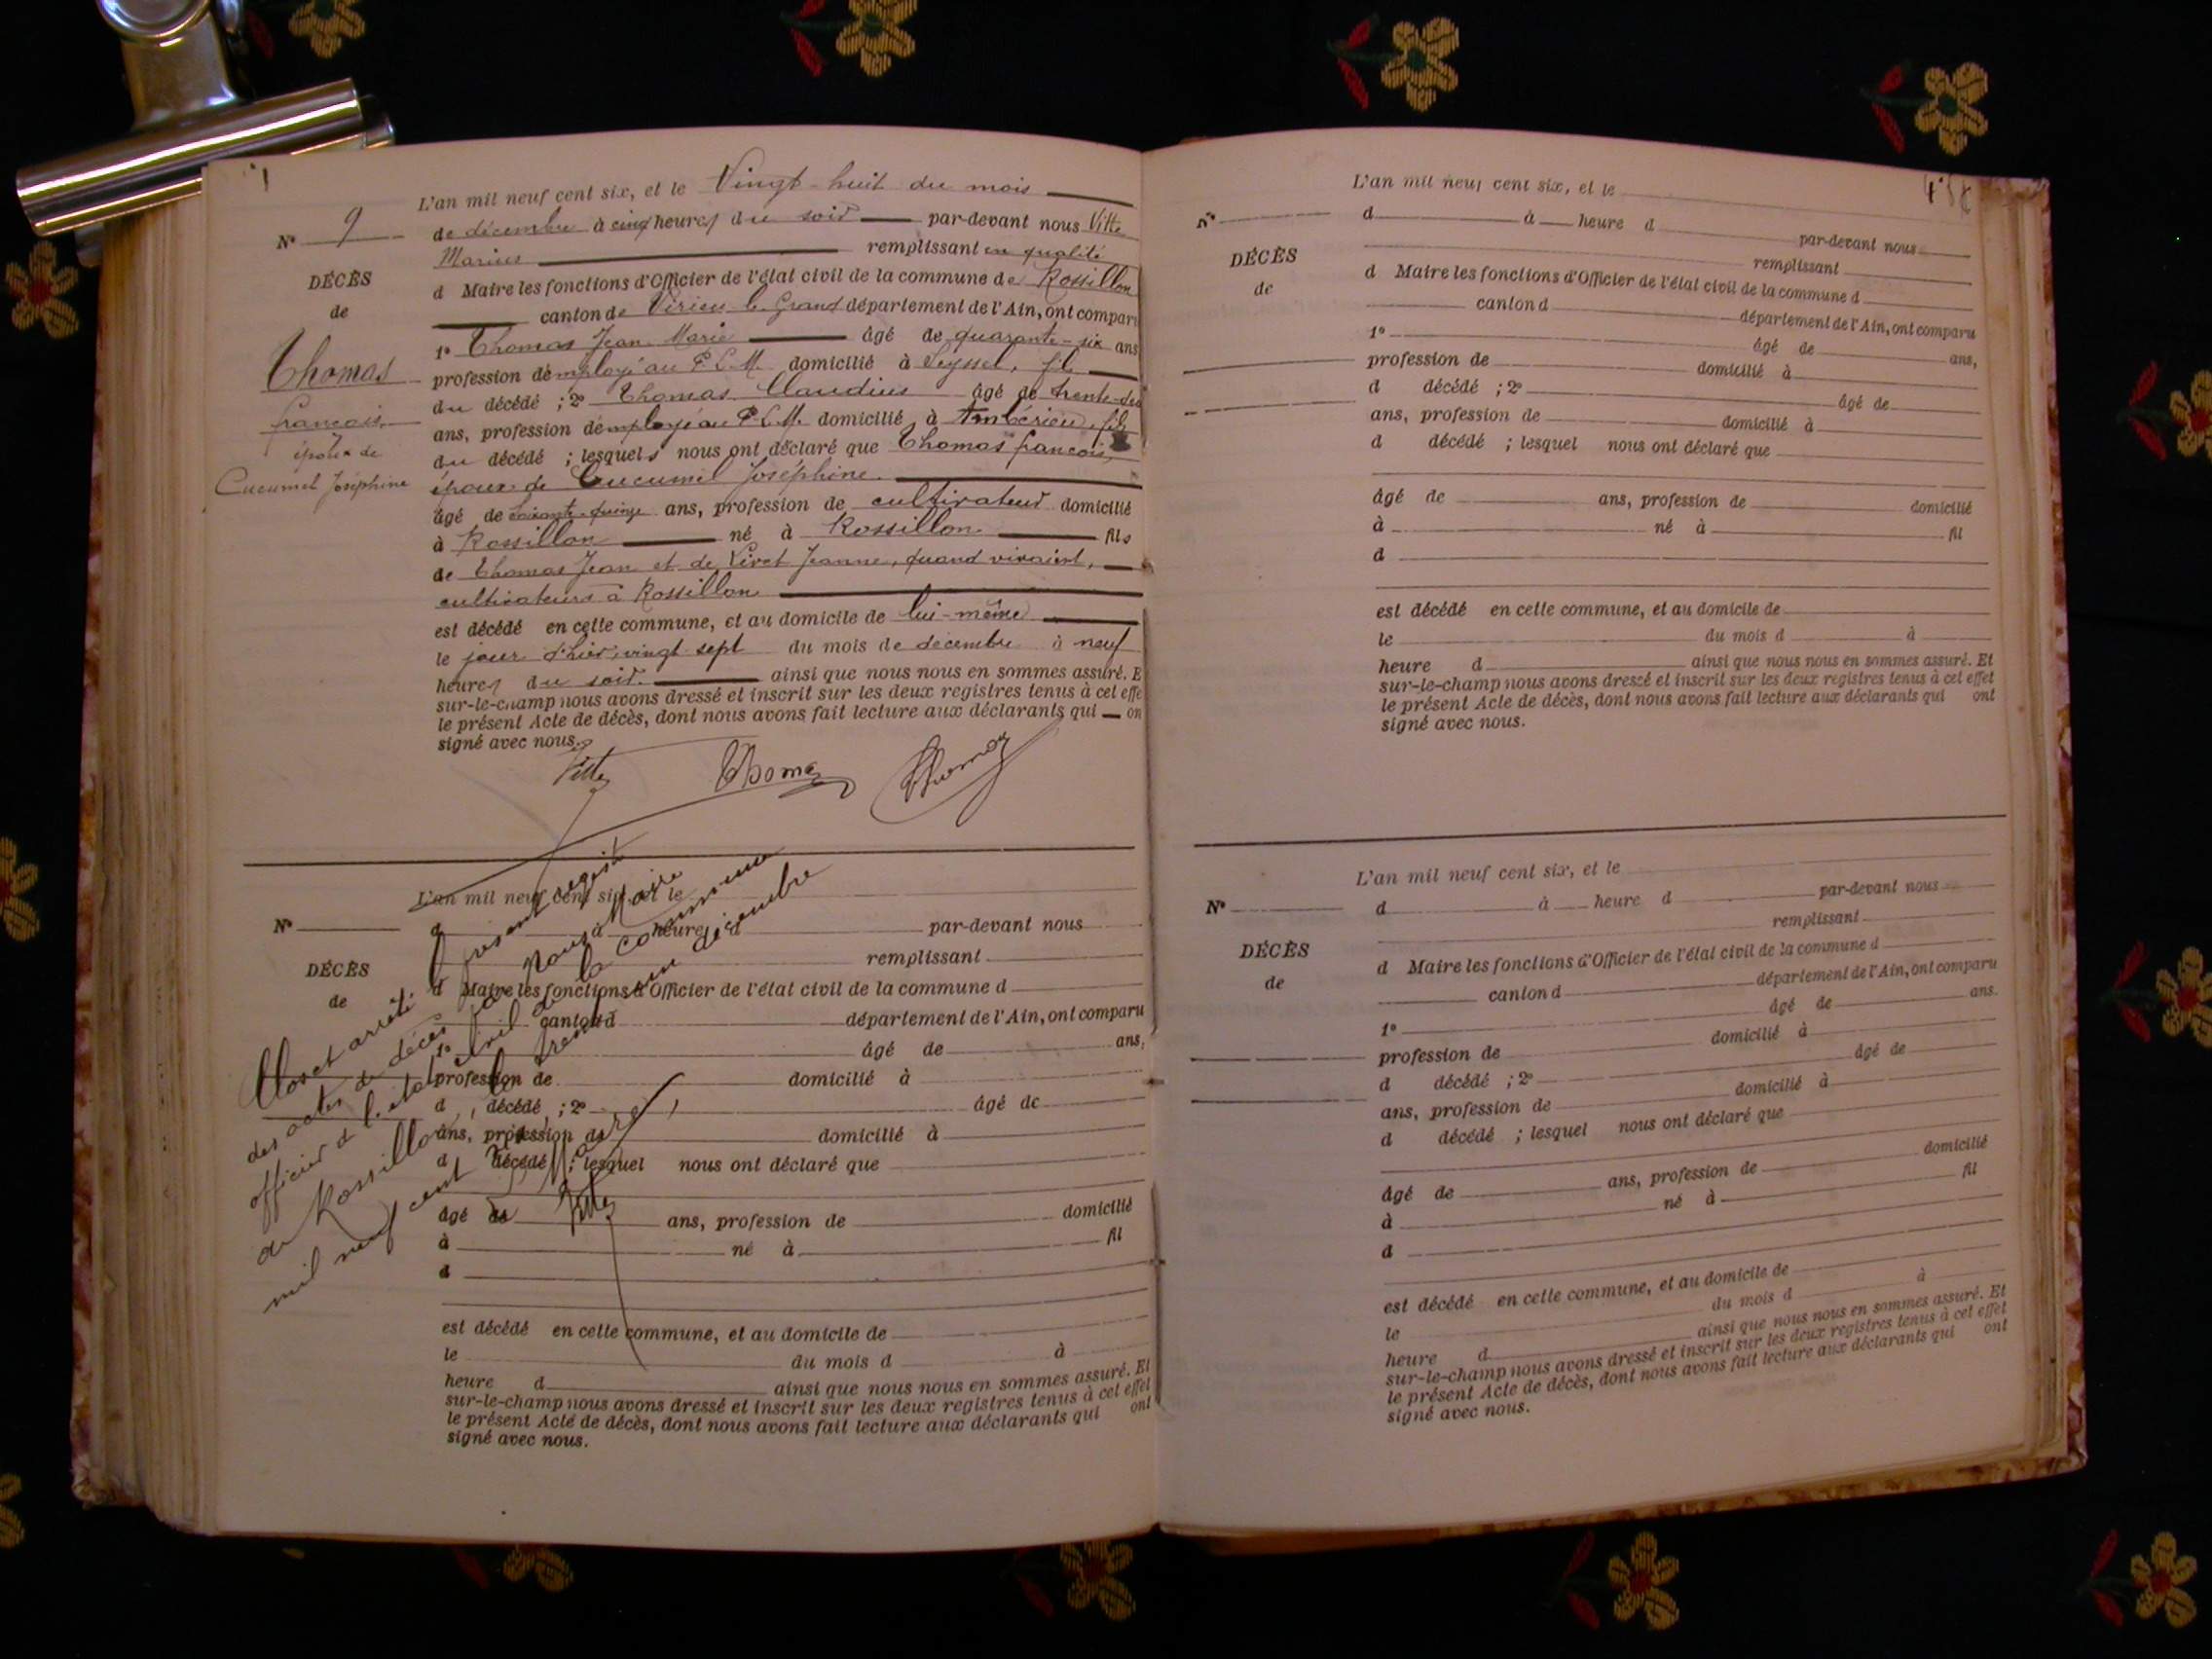 L'an mil neuf cent six, et le Vingt-huit du mois
N° 9
de décembre à cinq heures du soir par-devant nous Vitte
Marius remplissant en qualité
DÉCÈS
de
d Maire les fonctions d'Officier de l'état civil de la commune de Rossillon
canton de Virieu le Grand département de l'Ain, ont comparu
1° Thomas Jean Marie âgé de quarante-six ans
Thomas
françois,
époux de
Cucumel Joséphine
profession d'employé au P.L.M. domicilié à Seyssel, fils
du décédé ; 2° Thomas Claudius âgé de trente-
ans, profession d'employé au P.L.M. domicilié à Ambérieu, fils
du décédé ; lesquels nous ont déclaré que Thomas françois,
époux de Cucumel Joséphine.
âgé de soixante-quinze ans, profession de cultivateur domicilié
à Rossillon né à Rossillon fils
de Thomas Jean et de Jeanne, quand vivaient,
cultivateurs à Rossillon
est décédé en cette commune, et au domicile de lui-même
le jour d'hier, vingt sept du mois de décembre à neuf
heures du soir. ainsi que nous nous en sommes assuré. E
sur-le-champ nous avons dressé et inscrit sur les deux registres tenus à cet effe
le présent Acte de décès, dont nous avons fait lecture aux déclarants qui on
signé avec nous.
Vitte Thomas Thomas
L'an mil neuf cent six, et le
N°
d à heure d par-devant nous
remplissant
DÉCÈS
de
d Maire les fonctions d'Officier de l'état civil de la commune d
canton d département de l'Ain, ont comparu
1° âgé de ans,
profession de domicilié à
d décédé ; 2° âgé de
ans, profession de domicilié à
d décédé ; lesquel nous ont déclaré que
âgé de ans, profession de domicilié
à né à fil
d
est décédé en cette commune, et au domicile de
le du mois d à
heure d ainsi que nous nous en sommes assuré. Et
sur-le-champ nous avons dressé et inscrit sur les deux registres tenus à cet effet
le présent Acte de décès, dont nous avons fait lecture aux déclarants qui ont
signé avec nous.
Clos et arrêté le présent registre
des actes de décès par nous Maire
officier de l'état civil de la commune
de Rossillon, le trente un décembre
mil neuf cent six.
Le Maire,
Vitte
L'an mil neuf cent six, et le
N°
d à heure d par-devant nous
remplissant
DÉCÈS
de
d Maire les fonctions d'Officier de l'état civil de la commune d
canton d département de l'Ain, ont comparu
1° âgé de ans,
profession de domicilié à
d décédé ; 2° âgé de
ans, profession de domicilié à
d décédé ; lesquel nous ont déclaré que
âgé de ans, profession de domicilié
à né à fil
d
est décédé en cette commune, et au domicile de
le du mois d à
heure d ainsi que nous nous en sommes assuré. Et
sur-le-champ nous avons dressé et inscrit sur les deux registres tenus à cet effet
le présent Acte de décès, dont nous avons fait lecture aux déclarants qui ont
signé avec nous.
L'an mil neuf cent six, et le
N°
d à heure d par-devant nous
remplissant
DÉCÈS
de
d Maire les fonctions d'Officier de l'état civil de la commune d
canton d département de l'Ain, ont comparu
1° âgé de ans.
profession de domicilié à
d décédé ; 2° âgé de
ans, profession de domicilié à
d décédé ; lesquel nous ont déclaré que
âgé de ans, profession de domicilié
à né à fil
d
est décédé en cette commune, et au domicile de
le du mois d à
heure d ainsi que nous nous en sommes assuré. Et
sur-le-champ nous avons dressé et inscrit sur les deux registres tenus à cet effet
le présent Acte de décès, dont nous avons fait lecture aux déclarants qui ont
signé avec nous.